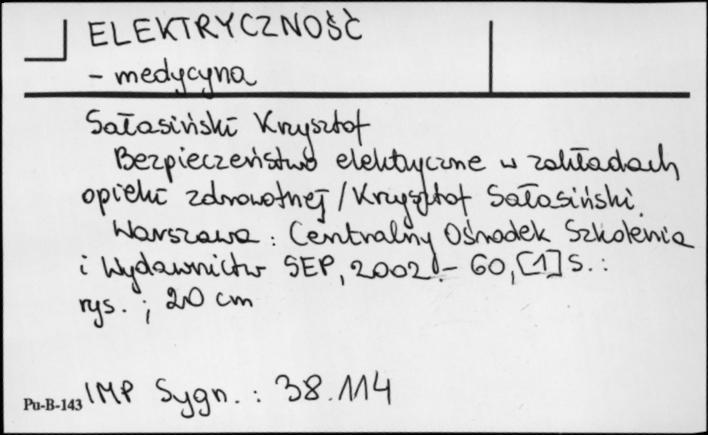 ELEKTRYCZNOŚĆ
- medycyna
Sałasiński Krzysztof
Bezpieczeństwo elektryczne w zakładach
opieki zdrowotnej / Krzysztof Sałasiński.
Warszawa : Centralny Ośrodek Szkolenia
i Wydawnictw SEP, 2002. - 60, [1] s. :
rys. ; 20 cm
Pu-B-143 IMP Sygn. : 38.114